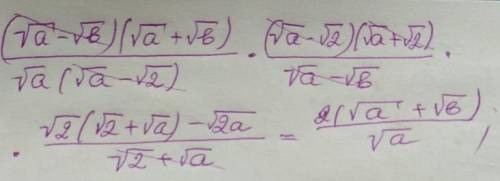 (√a - √b)(√a + √b) / √a(√a - √2) · (√a - √2)(√a + √2) / √a - √b ·
· √2(√2 + √a) - √2a / √2 + √a = 2(√a + √b) / √a ;